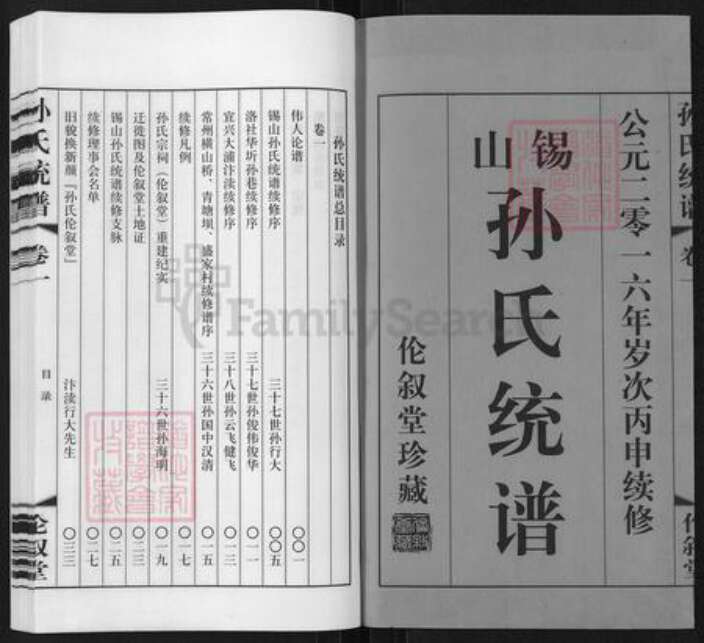 公元二零一六年岁次丙申续修
锡山
孙氏统谱
伦叙堂珍藏
孙氏统谱
卷一
伦叙堂
孙氏统谱总目录
卷一
伟人论谱 〇〇一
锡山孙氏统谱续修序 三十七世孙行大 〇〇五
洛社华圻孙巷续修序 三十七世孙俊伟俊华 〇一一
宜兴大浦汴渎续修序 三十八世孙云飞健飞 〇一三
常州横山桥、青塘坝、盛家村续修谱序 三十六世孙国中汉清 〇一五
续修凡例 〇一七
孙氏宗祠（伦叙堂）重建纪实 三十六世孙海明 〇一九
迁徙图及伦叙堂土地证 〇二三
锡山孙氏统谱续修支脉 〇二五
续修理事会名单 〇二七
旧貌换新颜『孙氏伦叙堂』 汴渎行大先生 〇三三
孙氏统谱
卷一
目录
伦叙堂
FamilySearch